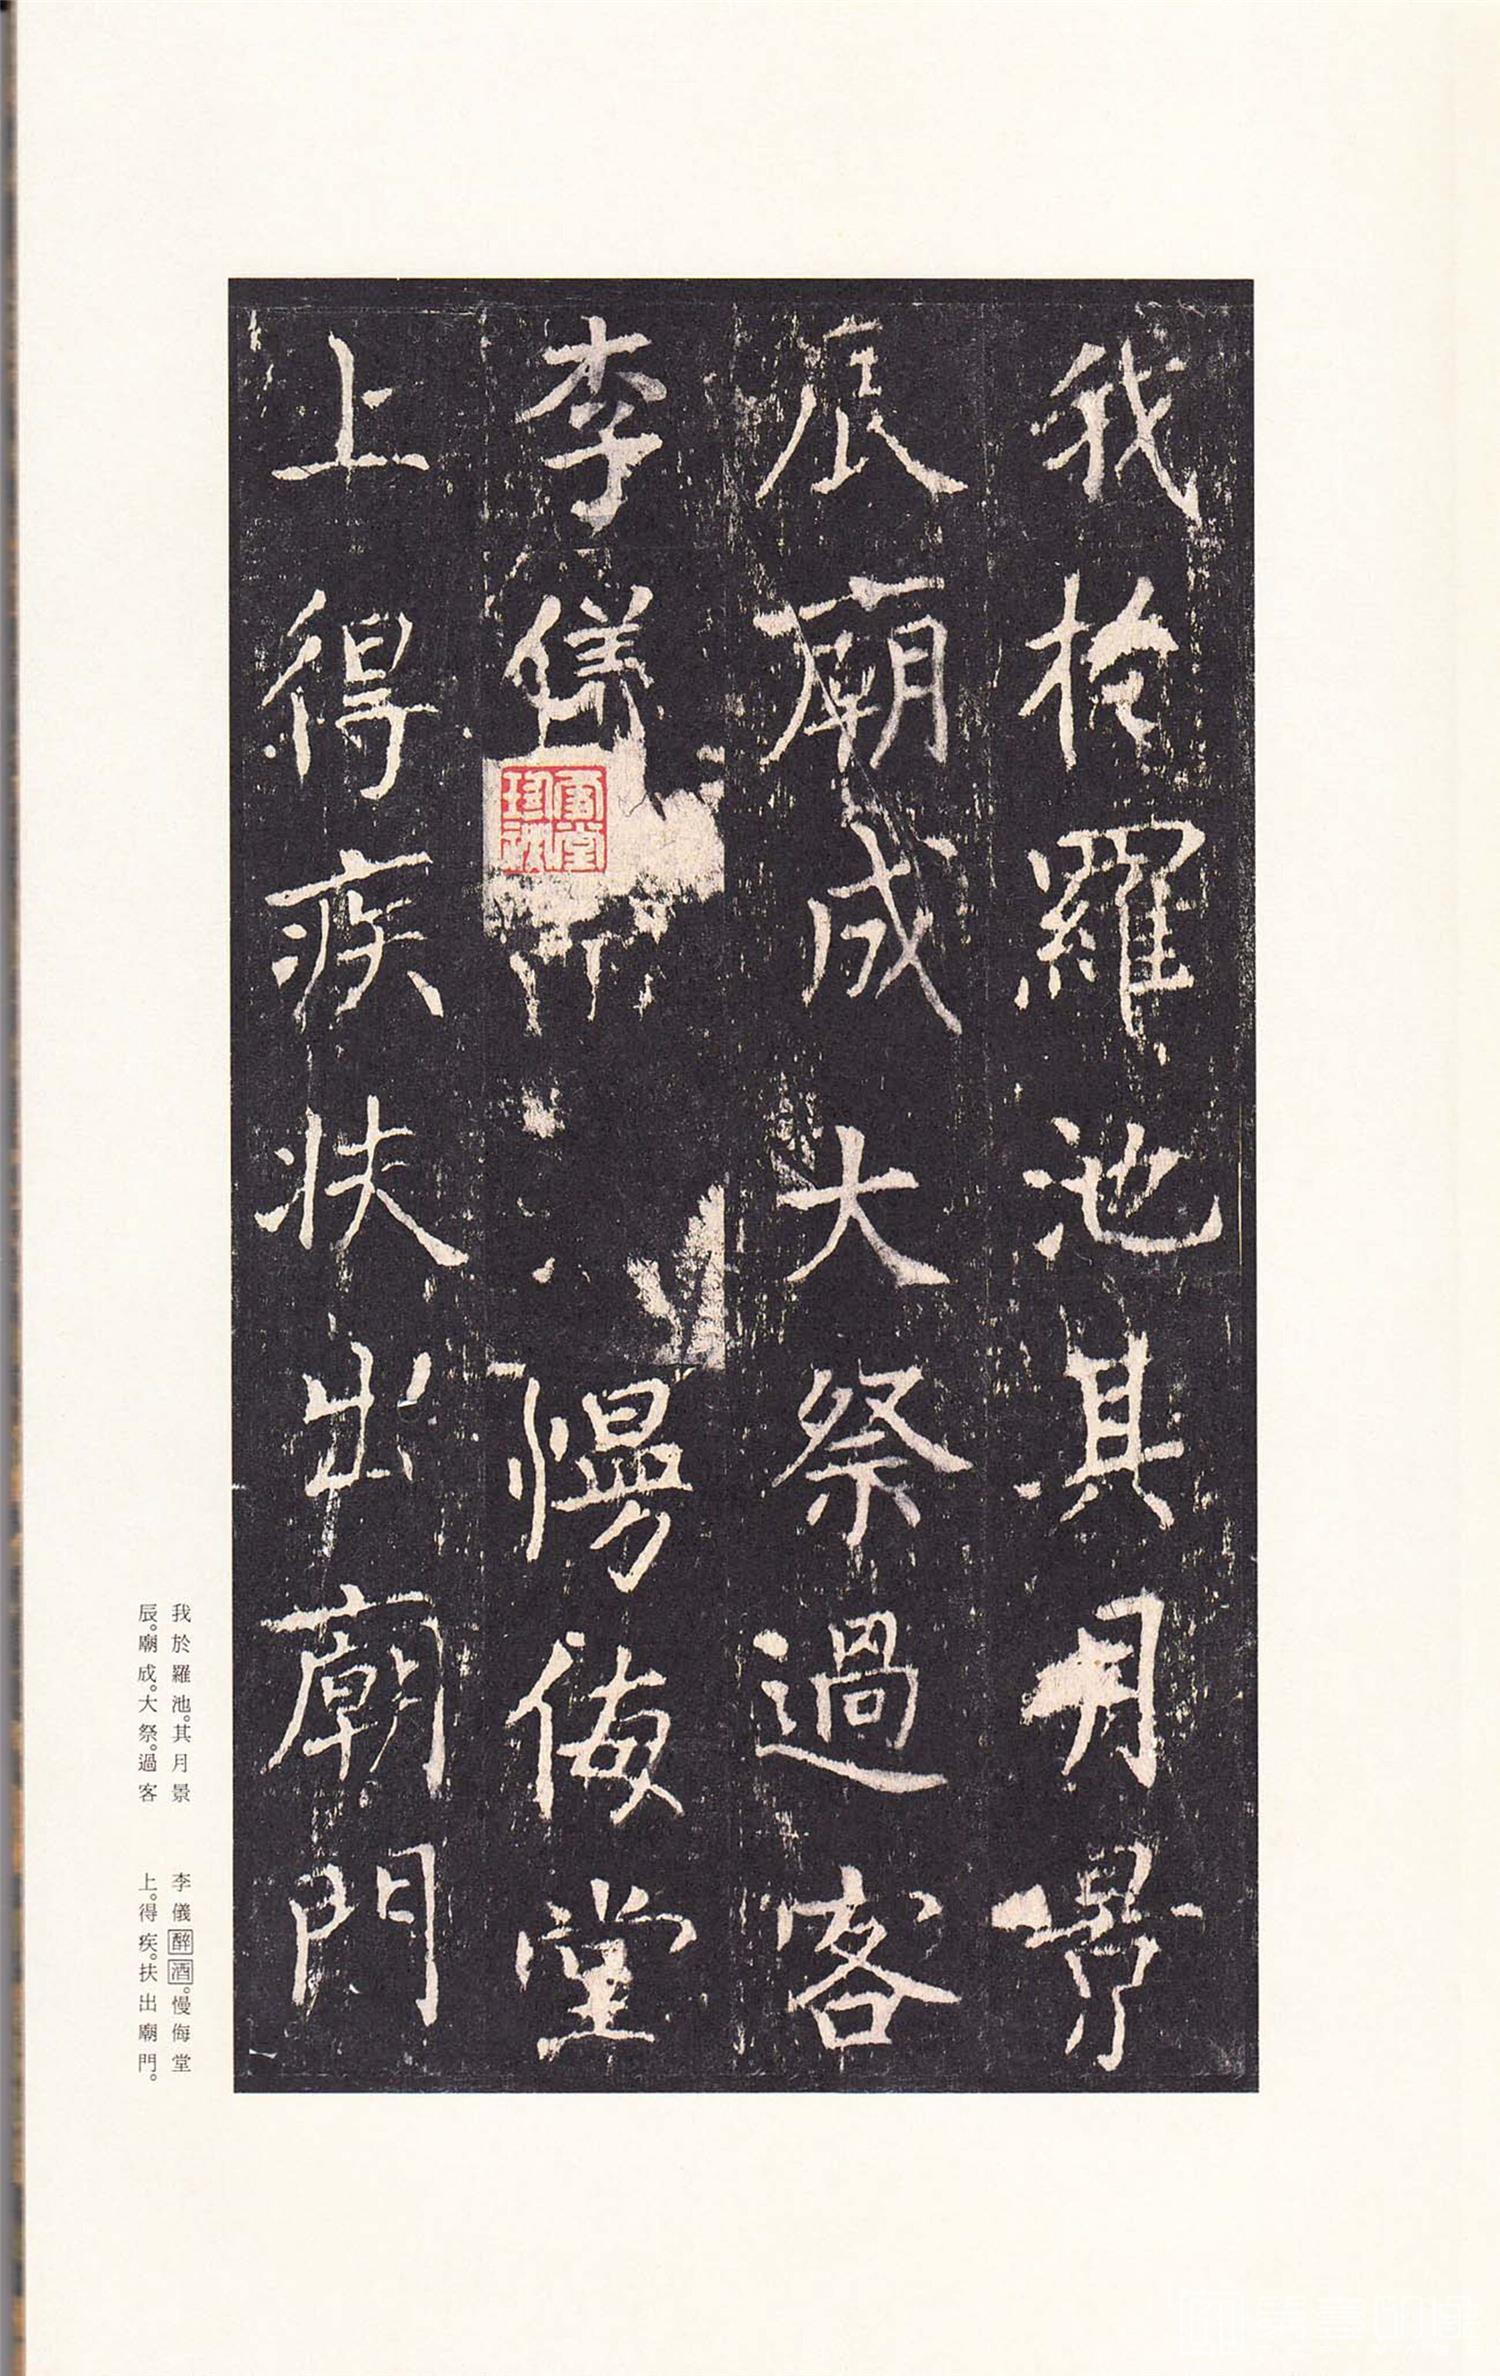 我於羅池其月景
辰廟成大祭過客
李儀慢侮堂
上得疾扶出廟門
我於羅池。其月景
辰。廟成。大祭。過客
李儀醉酒。慢侮堂
上。得疾。扶出廟門。